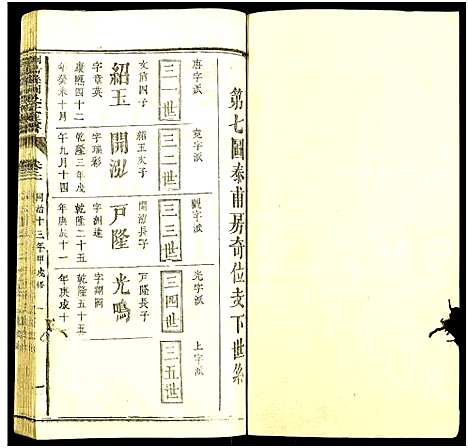 第七圖泰甫房奇位支下世系
唐字派
三一世
寬字派
三二世
觀字派
三三世
光字派
三四世
上字派
三五世
紹玉
文煊四子
字章英
康熙四十二
年癸未十月
開泓
紹玉次子
字瑤彩
乾隆三年戊
午九月十四
戸隆
開泓長子
字洲達
乾隆二十五
年庚辰十一
光鳴
戸隆長子
字翔岡
乾隆五十五
年庚戌十
同治十三年甲戌修